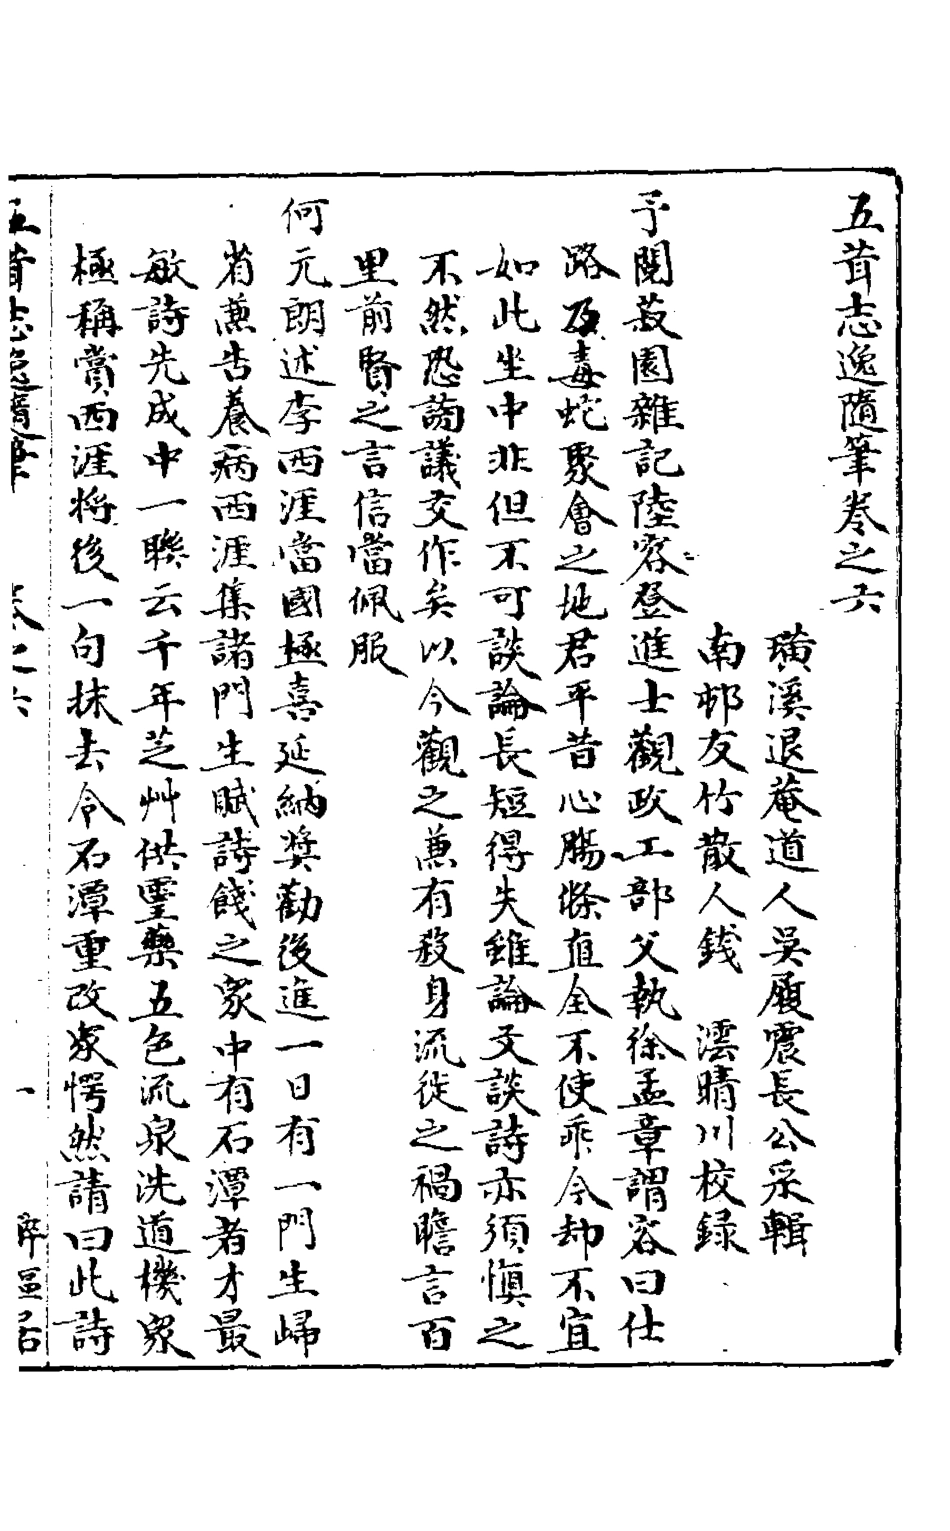 五茸志逸隨筆卷之六
璜溪退菴道人吳履震長公采輯
南邨友竹散人錢 澐晴川校録
予閱菽園雜記陸容登進士觀政工部父執徐孟章謂容曰仕
路乃毒蛇聚會之地君平昔心膓條直全不使乖今却不宜
如此坐中非但不可談論長短得失雖論文談詩亦須慎之
不然恐謗議交作矣以今觀之兼有殺身流徙之禍瞻言百
里前賢之言信當佩服
何元朗述李西涯當國極喜延納奬勸後進一日有一門生歸
省兼告養病西涯集諸門生賦詩餞之衆中有石潭者才最
敏詩先成中一聯云千年芝艸供靈藥五色流泉洗道機衆
極稱賞西涯將後一句抹去令石潭重改衆愕然請曰此詩
五茸志逸隨筆 卷之六 一 醉漚居